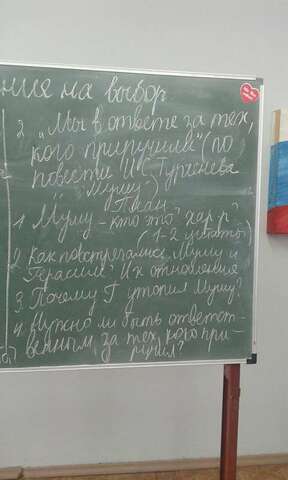 ния на выбор
2. „Мы в ответе за тех,
кого приручили" (по
повести И.С. Тургенева
„Муму"
План
1 Муму – кто это? хар-р?
(1-2 цитаты)
2 Как повстречались Муму и
Герасим? Их отношения
3. Почему Г утопил Муму?
4. Нужно ли быть ответст-
венным за тех, кого при-
ручил?